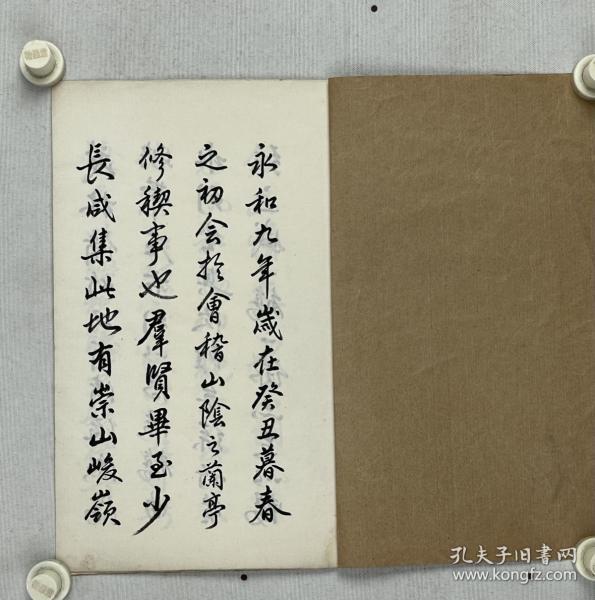 永和九年歲在癸丑暮春
之初会於會稽山陰之蘭亭
修稧事也羣賢畢至少
長咸集此地有崇山峻嶺
孔夫子旧书网
www.kongfz.com